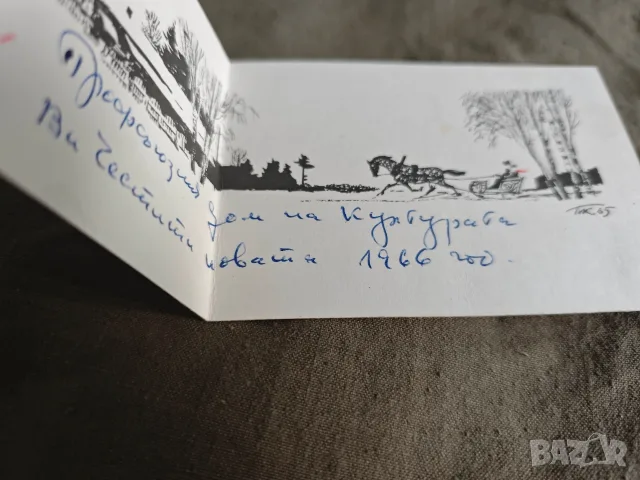 Профсъюзния дом на културата
Ви честити новата 1966 год.
65
BAZAR